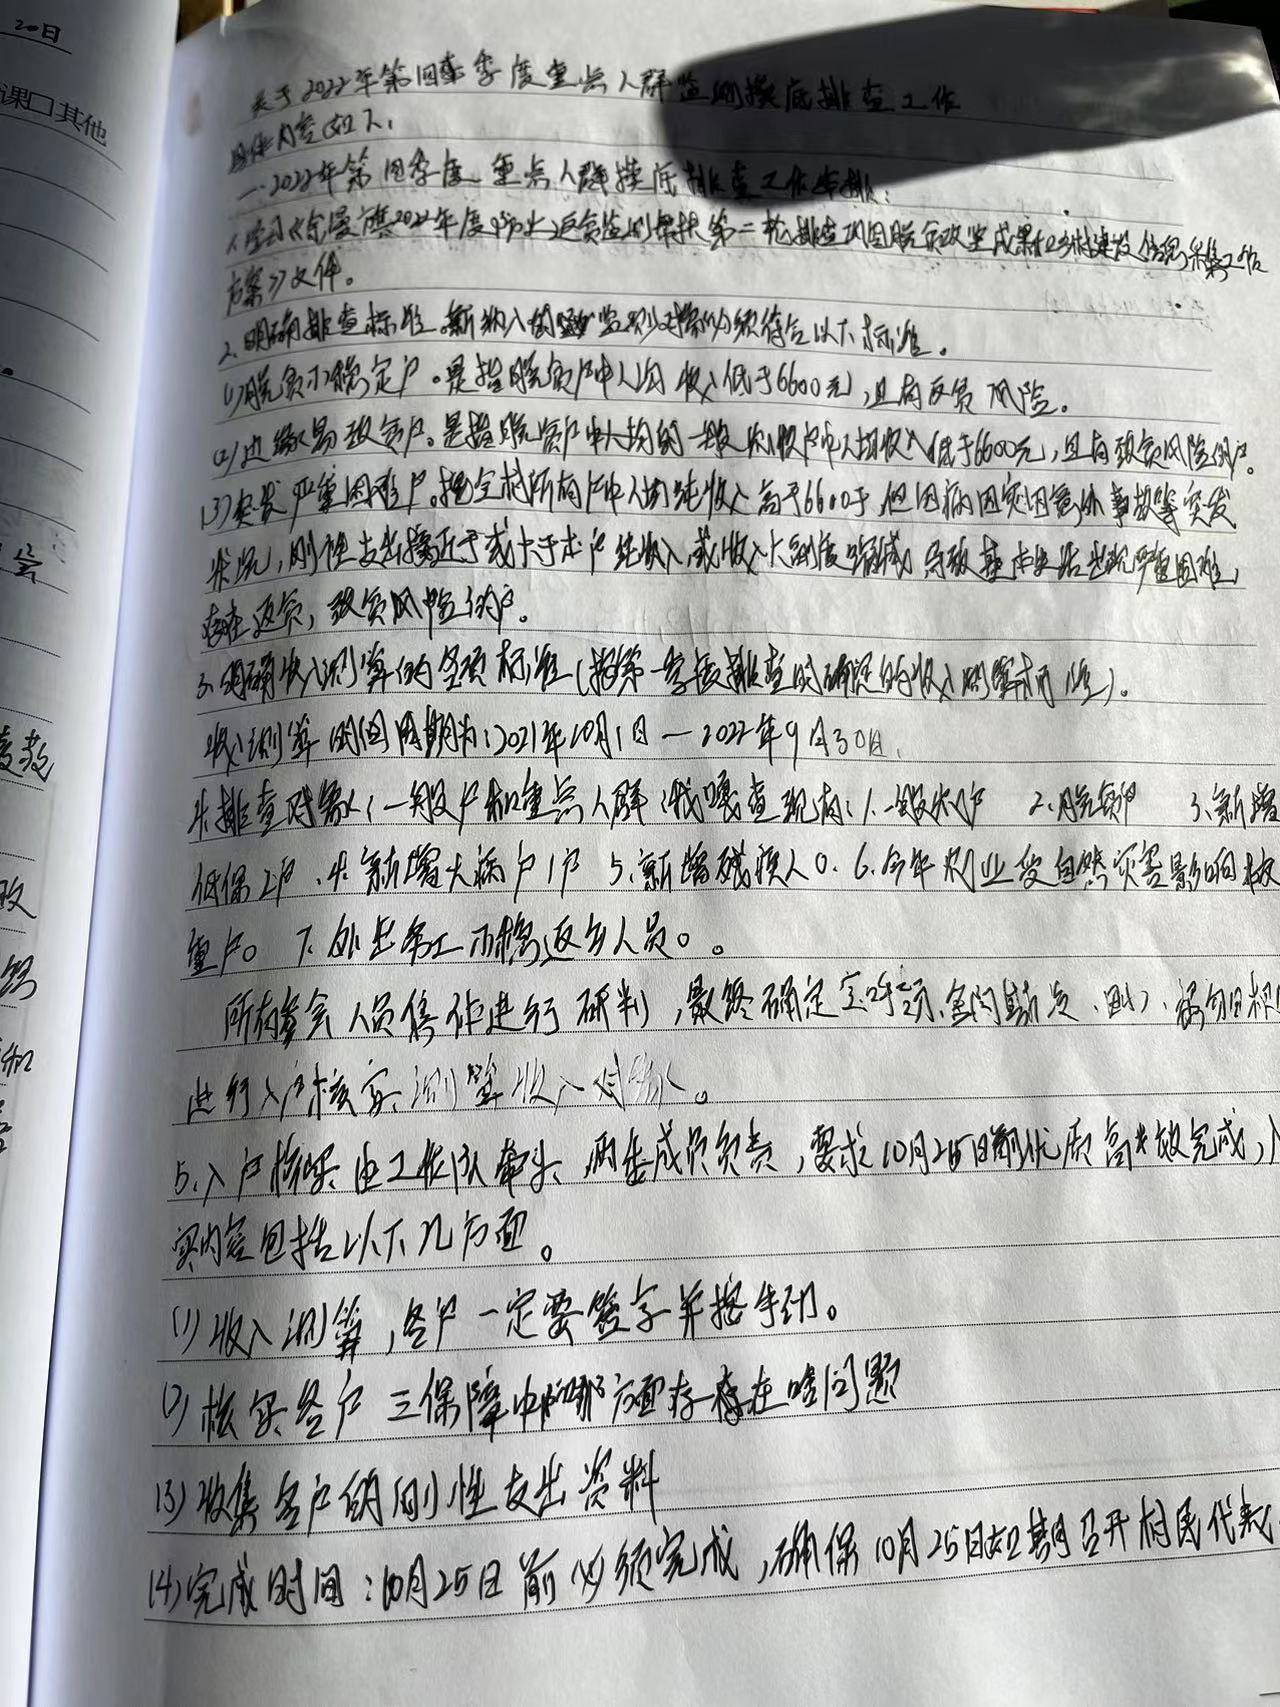 20日
课□其他
关于2022年第四季度重点人群监测摸底排查工作
内容如下:
一.2022年第四季度重点人群摸底排查工作安排:
1.学习《奈曼旗2022年度防止返贫监测帮扶第二轮排查巩固脱贫攻坚成果和乡村建设信息采集工作
方案》文件。
2.明确排查标准。新纳入的监测对象必须符合以下标准。
(1)脱贫不稳定户。是指脱贫户中人均收入低于6600元,且有返贫风险。
(2)边缘易致贫户。是指脱贫户中人均的一般农牧户中人均收入低于6600元,且有致贫风险的户。
(3)突发严重困难户。指全村所有户中人均纯收入高于6600于,但因病因灾因意外事故等突发
状况,刚性支出接近于或大于本户纯收入,或收入大副度缩减导致基本生活出现严重困难,
存在返贫,致贫风险的户。
3.明确收入测算的各项标准(按第一季度排查时确定的收入测算标准)。
收入测算时间周期为:2021年10月1日—2022年9月30日.
4.排查对象:一般户和重点人群: 查现有:1.一般农户 2.脱贫户 3.新增
低保2户.4.新增大病户1户 5.新增残疾人0.6.今年农业受自然灾害影响
重户0 7.外出务工不稳返乡人员0。
所有参会人员 进行研判,最终确定
进行入户核实测算收入对象。
5.入户核实由工作队牵头两委成员负责,要求10月25日前优质高效完成,入
实内容包括以下几方面。
(1)收入测算,各户一定要签字并按手印。
(2)核实各户三保障中的哪方面存存在啥问题
(3)收集各户的刚性支出资料
(4)完成时间:10月25日前必须完成,确保10月25日如期召开村民代表